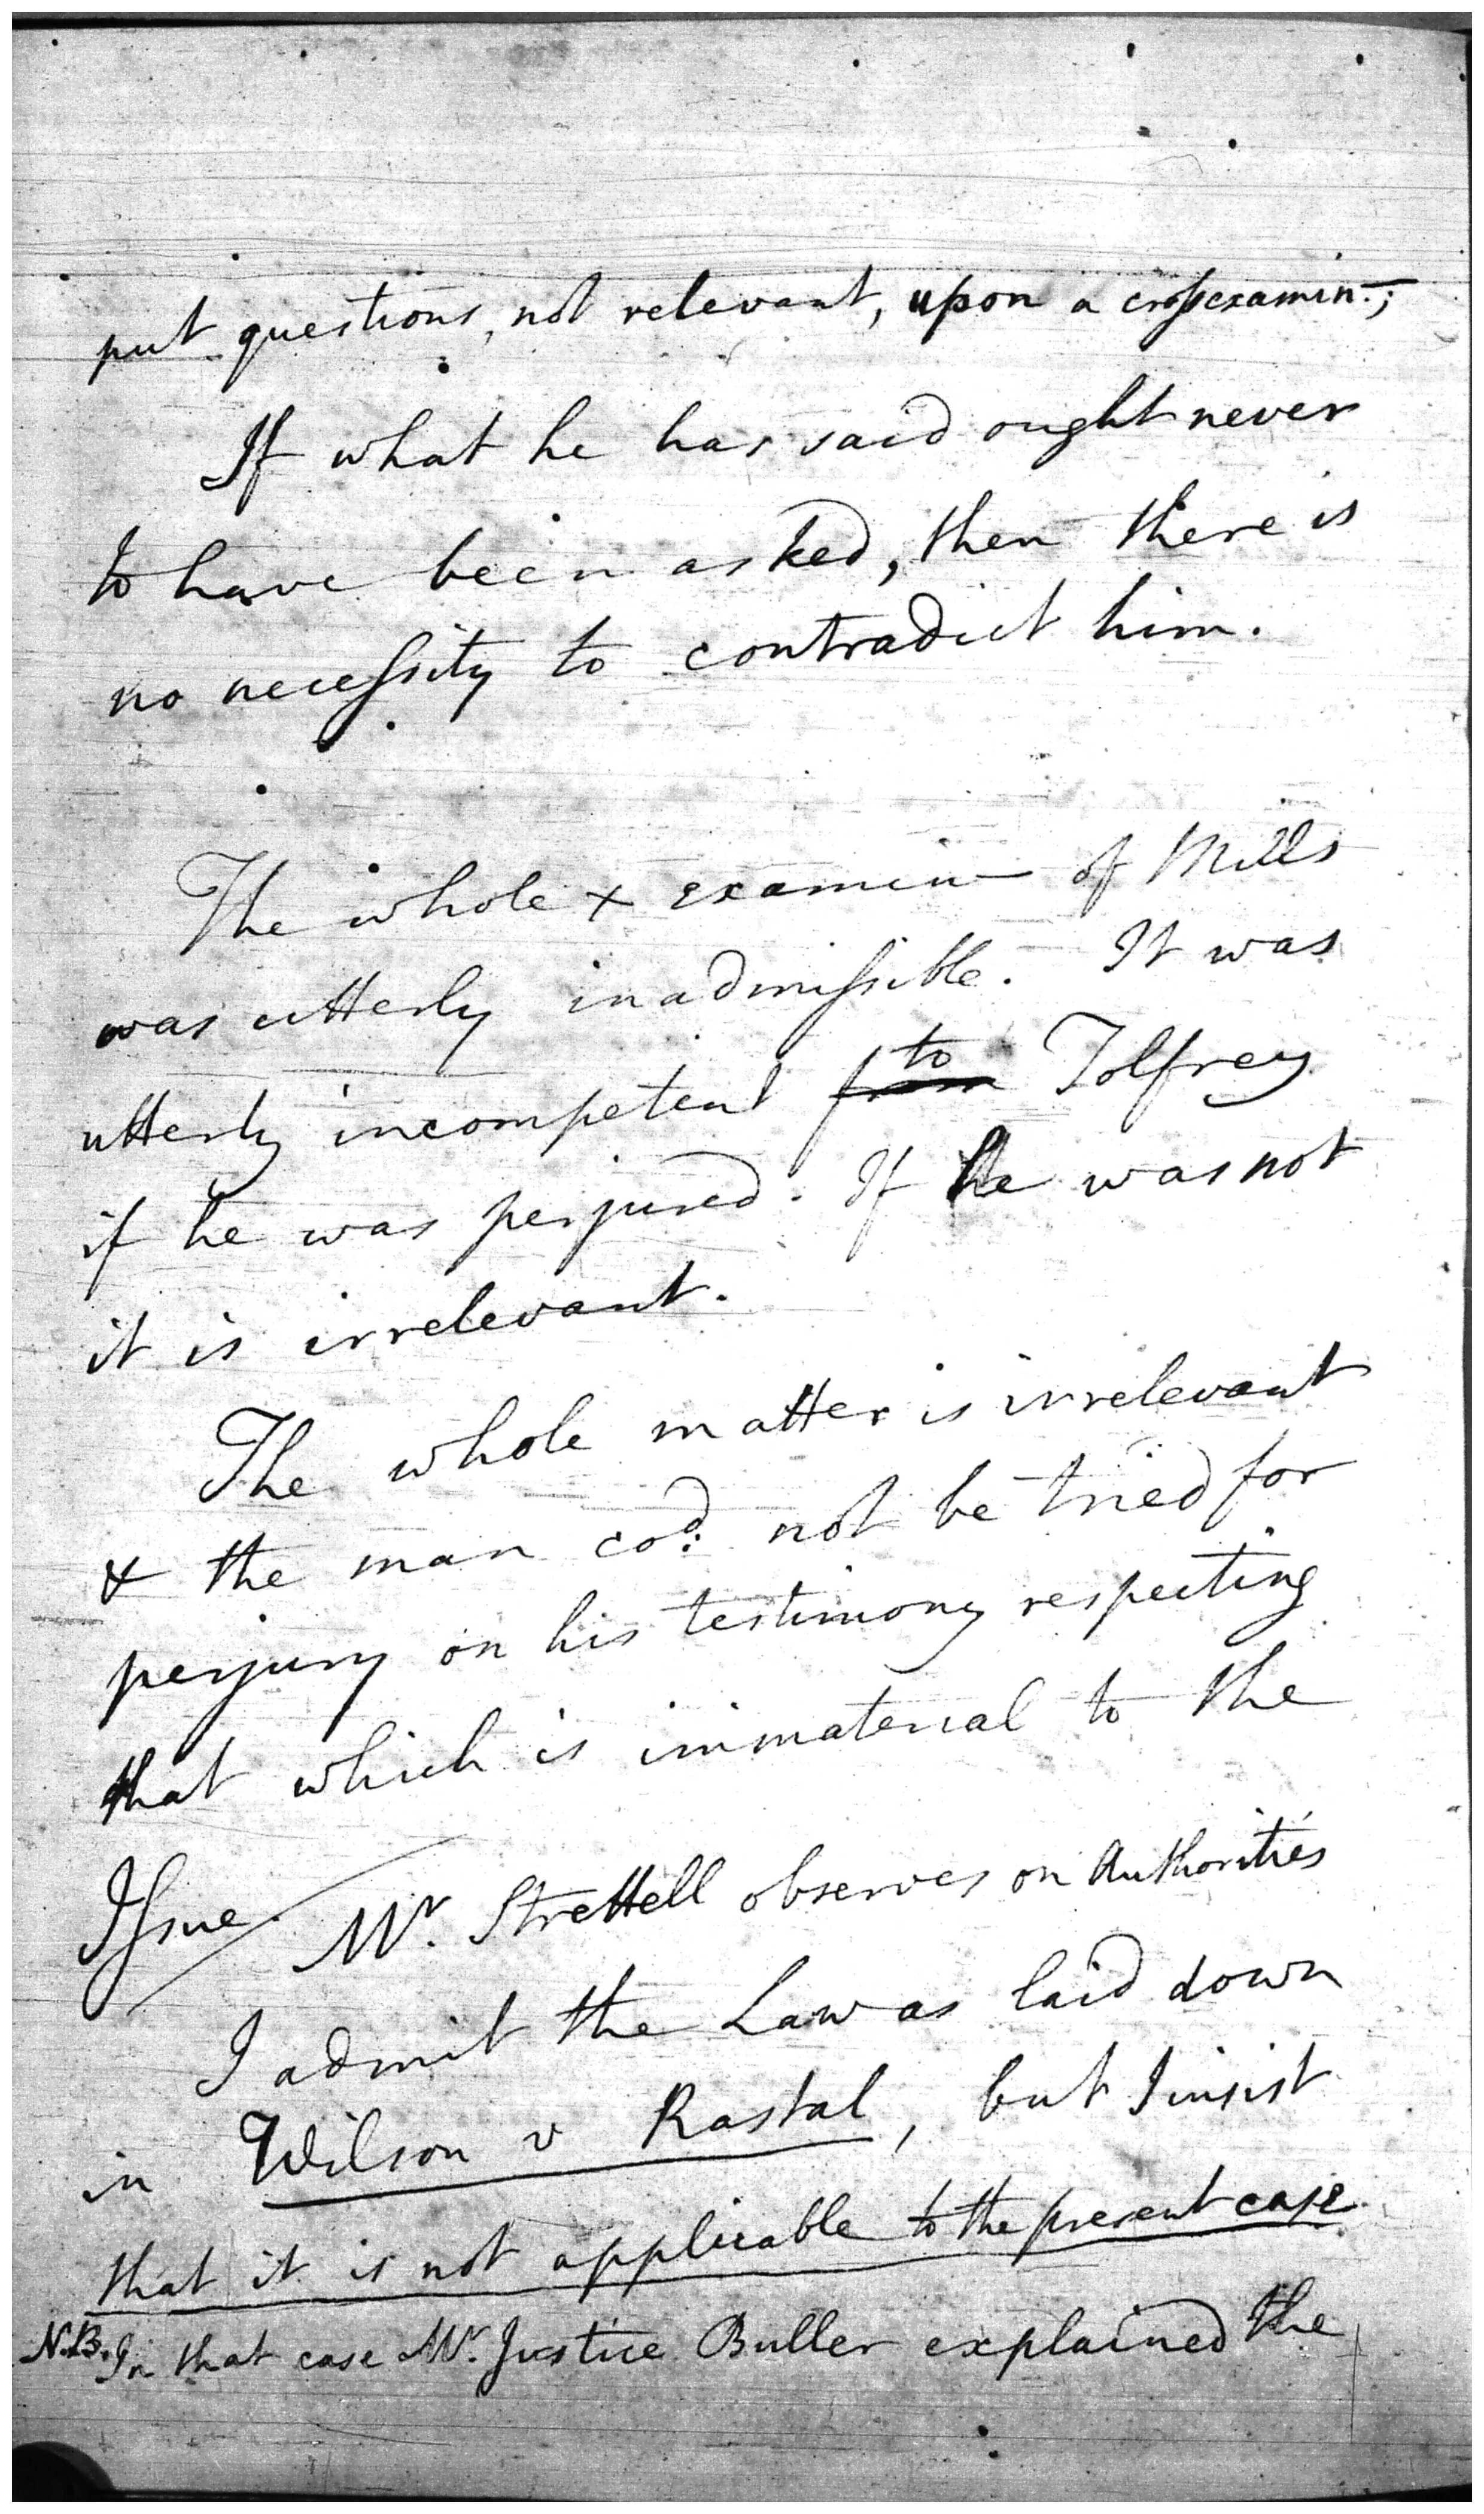 put questions, not relevant, upon a crossexamin.;
If what he has said ought never
to have been asked, then there is
no necessity to contradict him.
The whole x examin of Mills
was utterly inadmissible. It was
utterly incompetent from to Tolfrey
if he was perjured. If he was not
it is irrelevant.
The whole matter is irrelevant
& the man cod. not be tried for
perjury on his testimony respecting
that which is immaterial to the
Issue. / Mr. Strettell observes on Authorities
I admit the Law as laid down
in Wilson v Rastal, but I insist
that it is not applicable to the present case.
N.B. In that case Mr. Justice Buller explained the